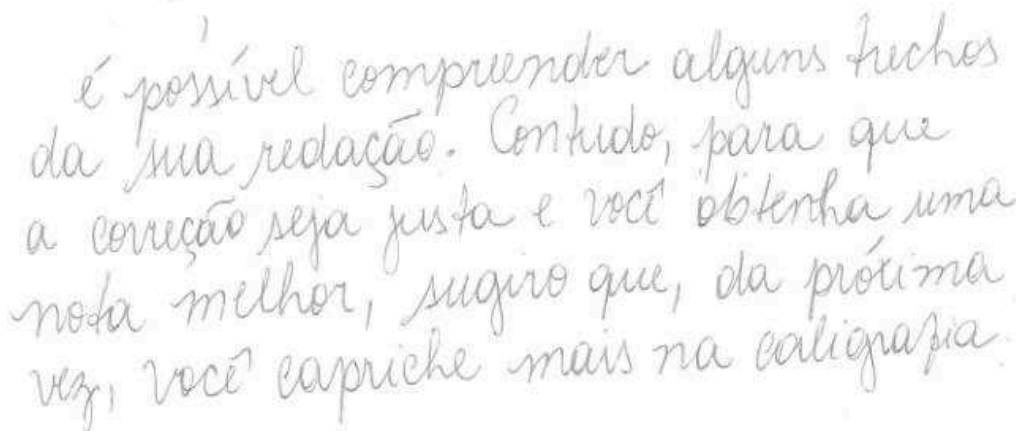 é possível compreender alguns trechos
da sua redação. Contudo, para que
a correção seja justa e você obtenha uma
nota melhor, sugiro que, da próxima
vez, você capriche mais na caligrafia.